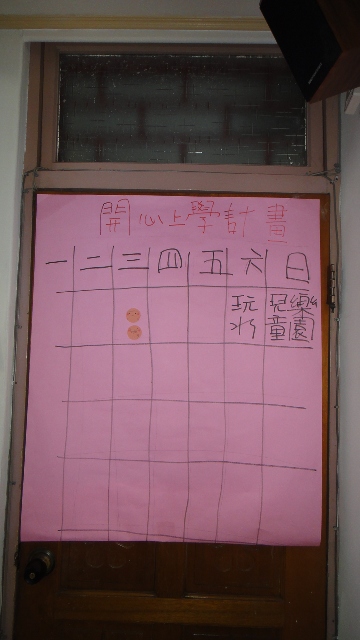 開心上學計畫
一 二 三 四 五 六 日
玩水 兒童樂園